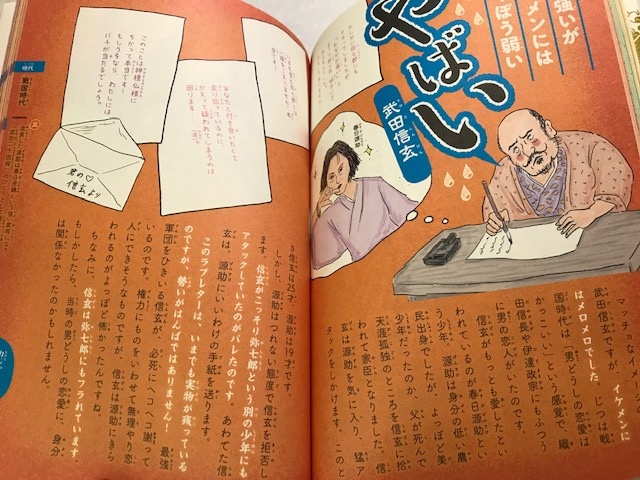 強いが
メンには
ぽう弱い
やばい
武田信玄
春日源助
マッチョなイメー
武田信玄ですが、じつは戦
イケメンに
はメロメロでした。
国時代は「男どうしの恋愛は
かっこいい」という感覚で、織
田信長や伊達政宗にもふつう
に男の恋人がいたのです。
信玄がもっとも愛したとい
われているのが春日源助とい
う少年。源助は身分の低い農
民出身でしたが、よっぽど美
少年だったのか、父が死んで
天涯孤独のところを信玄に拾
われて家臣となりました。信
玄は源助を気に入り、猛ア
タックをしかけます。このと
き信玄は25才、源助は19才です。
しかし、源助はつれない態度で信玄を拒否し
ます。信玄がこっそり弥七郎という別の少年にも
アタックしていたのがバレたのです。あわてた信
玄は、源助にいいわけの手紙を送ります。
このラブレターは、いまでも実物が残っている
のですが、勢いがはんぱではありません！最強
軍団をひきいる信玄が、必死にヘコヘコ謝って
いるのです。権力にものをいわせて無理やり恋
人にできそうなものですが、信玄は源助にきら
われるのがよっぽど怖かったんですね。
ちなみに、信玄は弥七郎にもフラれています。
もしかしたら、当時の男どうしの恋愛に、身分
は関係なかったのかもしれません。
あなたと付き合いたくて
走り回っているのに
かえって疑われてしまうのは
困ります！
このことは神様仏様に
ちかって本当です！
もしうそなら、わたしには
バチが当たるでしょう。
君の♡
信玄より
時代
戦国時代